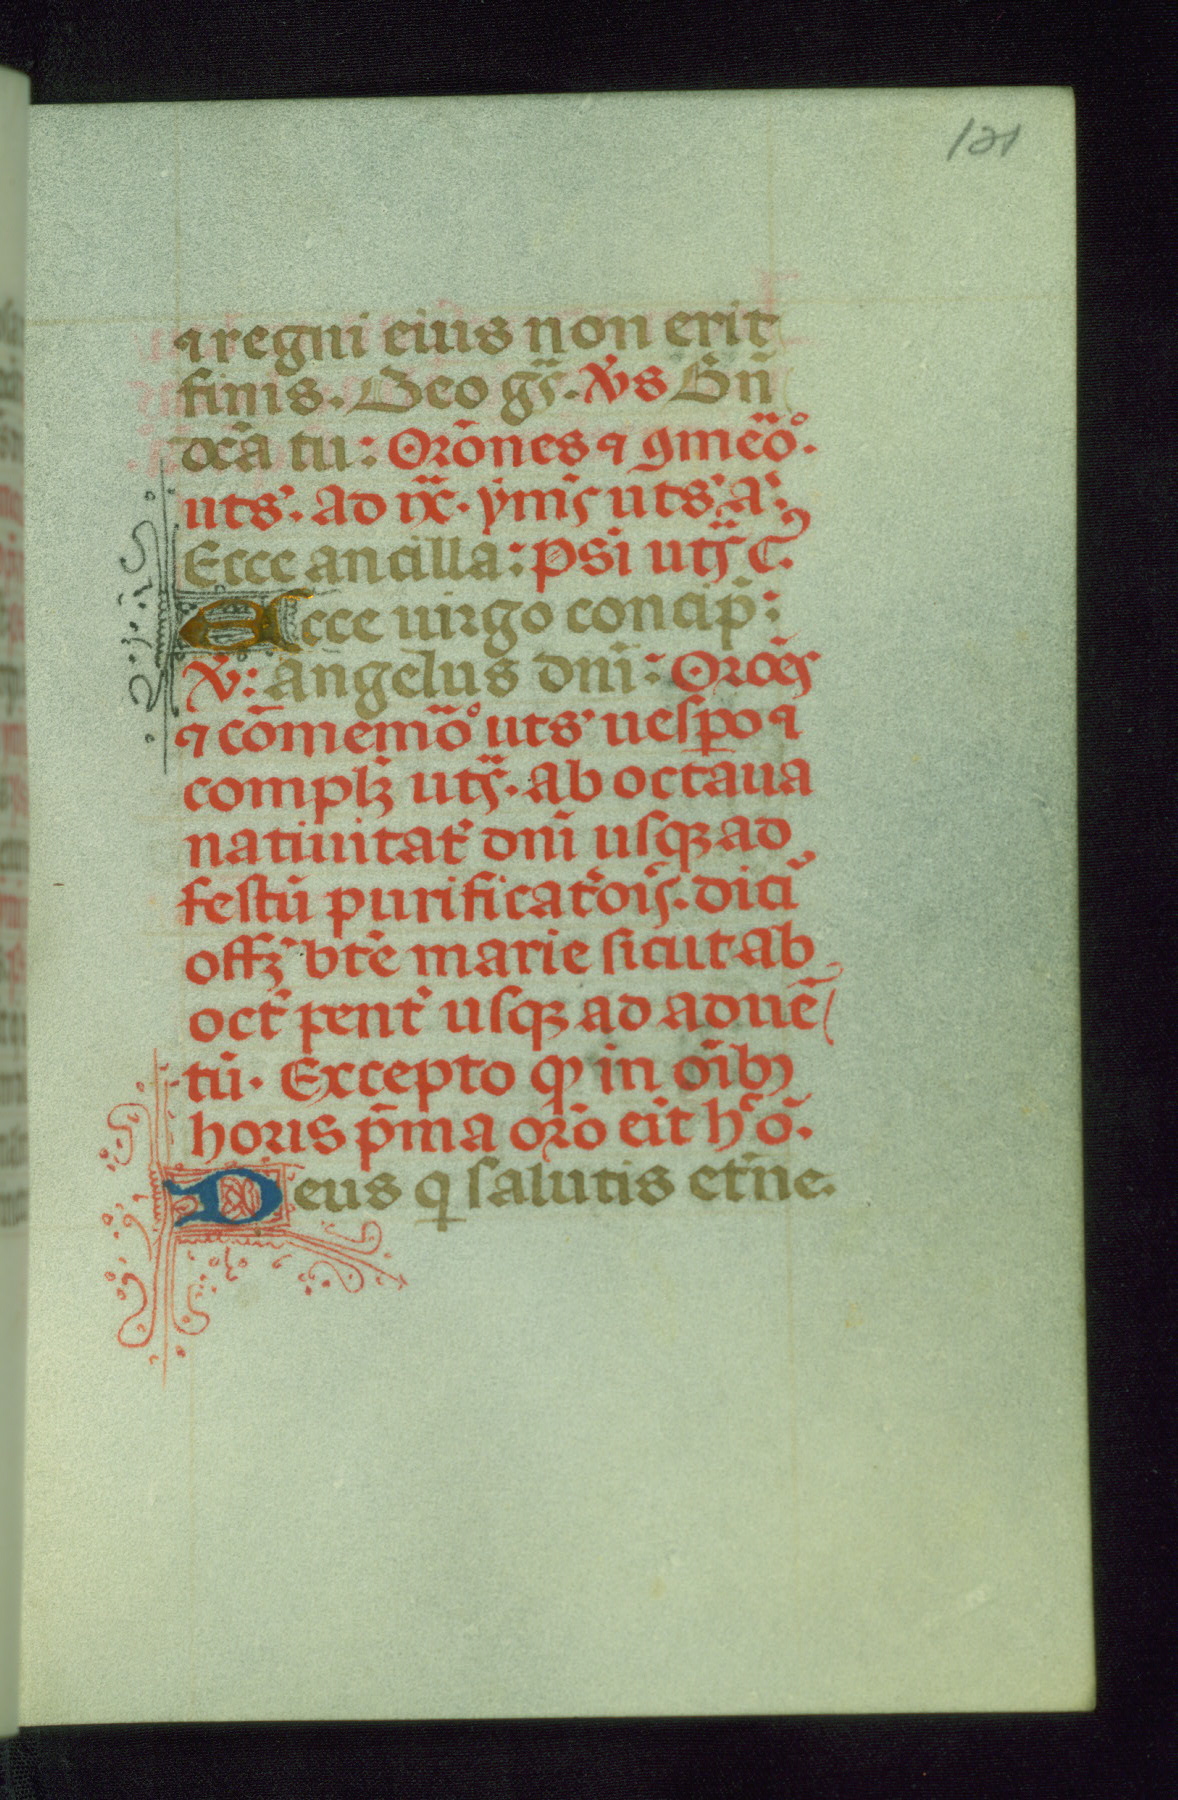 121
⁊ regni eius non erit
finis. Deo gr̃s. V̾s Bn̄
dc̄a tu: Orōnes ⁊ ꝯmeō.
uts᾽. ad ix̄. ẏmꝰ uts᾽. a᾽.
Ecce ancilla: psi uts̄
Ecce uirgo concip̄:
V̾: Angelus dn̄i: Orōes
⁊ cōmemōo uts᾽ uesp̄o ⁊
complꝫ uts̄. ab octaua
natiuitat᾽ dn̄i usqꝫ ad
festū purificat᾽ois. dicit᾽
offꝫ bt̄e marie sicut ab
oct᾽ pent᾽ usqꝫ ad aduē
tū. Excepto ꝙ in oīb᾽
horis p̄ma orō erit h᾽ ō.
Deus q salutis et᾽ne.